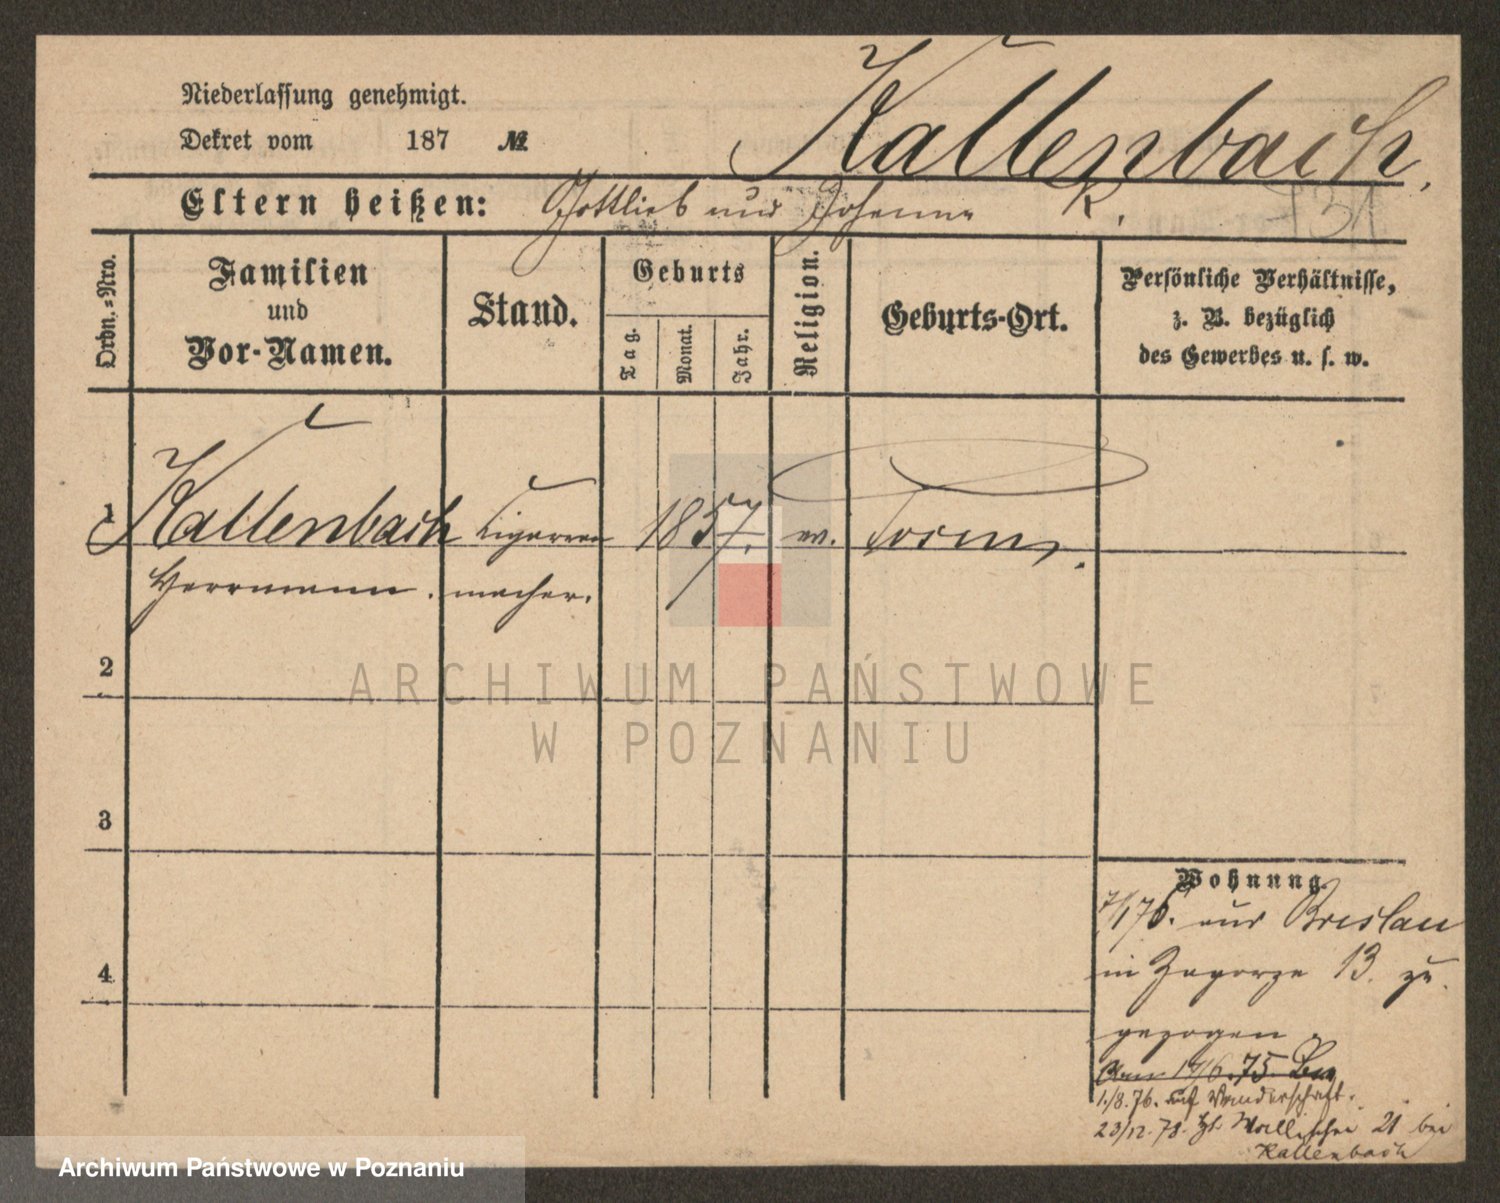 Niederlassung genehmigt.
Dekret vom 187 №
Kallenbach.
Eltern heißen: Gottlieb und Johanne K.
Ordn.-Nro.
Familien
und
Vor-Namen.
Stand.
Geburts
Tag.
Monat.
Jahr.
Religion.
Geburts-Ort.
Persönliche Verhältnisse,
z. B. bezüglich
des Gewerbes u. s. w.
1 Kallenbach Cigarren 1857. ev.
Herrmann. macher.
2
3
4
Wohnung.
7/1 76. aus Breslau
in Zagorze 13. zu
gezogen
1./8.76. auf Wanderschaft.
23/12.78. Wallischei 21 bei
Kallenbach
ARCHIWUM PAŃSTWOWE
W POZNANIU
Archiwum Państwowe w Poznaniu